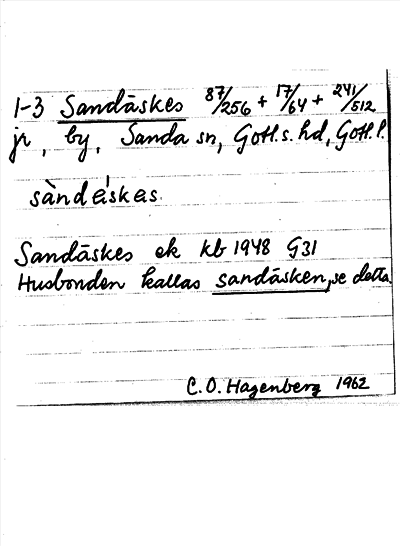 1-3 Sandäskes 87/256 + 17/64 + 241/512
jr, by, Sanda sn, Gotl. s. hd, Gotl. l.
sàndéskes.
Sandäskes ek kb 1948 G31
Husbonden kallas sandäsken, se detta.
C. O. Hagenberg 1962